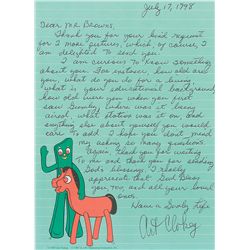 July 17, 1998
Dear Mr. Browns,
Thank you for your kind request
for 2 more pictures, which, of course, I
am delighted to send you.
I am curious to know something
about you. For instance, how old are
you, what do you do for a living
what is your educational background
how old were you when you first
saw Gumby. Where was it being
aired, what station was it on and
anything else about yourself you would
care to add. I hope you don't mind
my asking so many questions.
Again, thank you for writing
to me and thank you for sending
God's blessing. I really
appreciate that. God bless
you, too, and all your loved
ones.
Have a Gumby life
Art Clokey